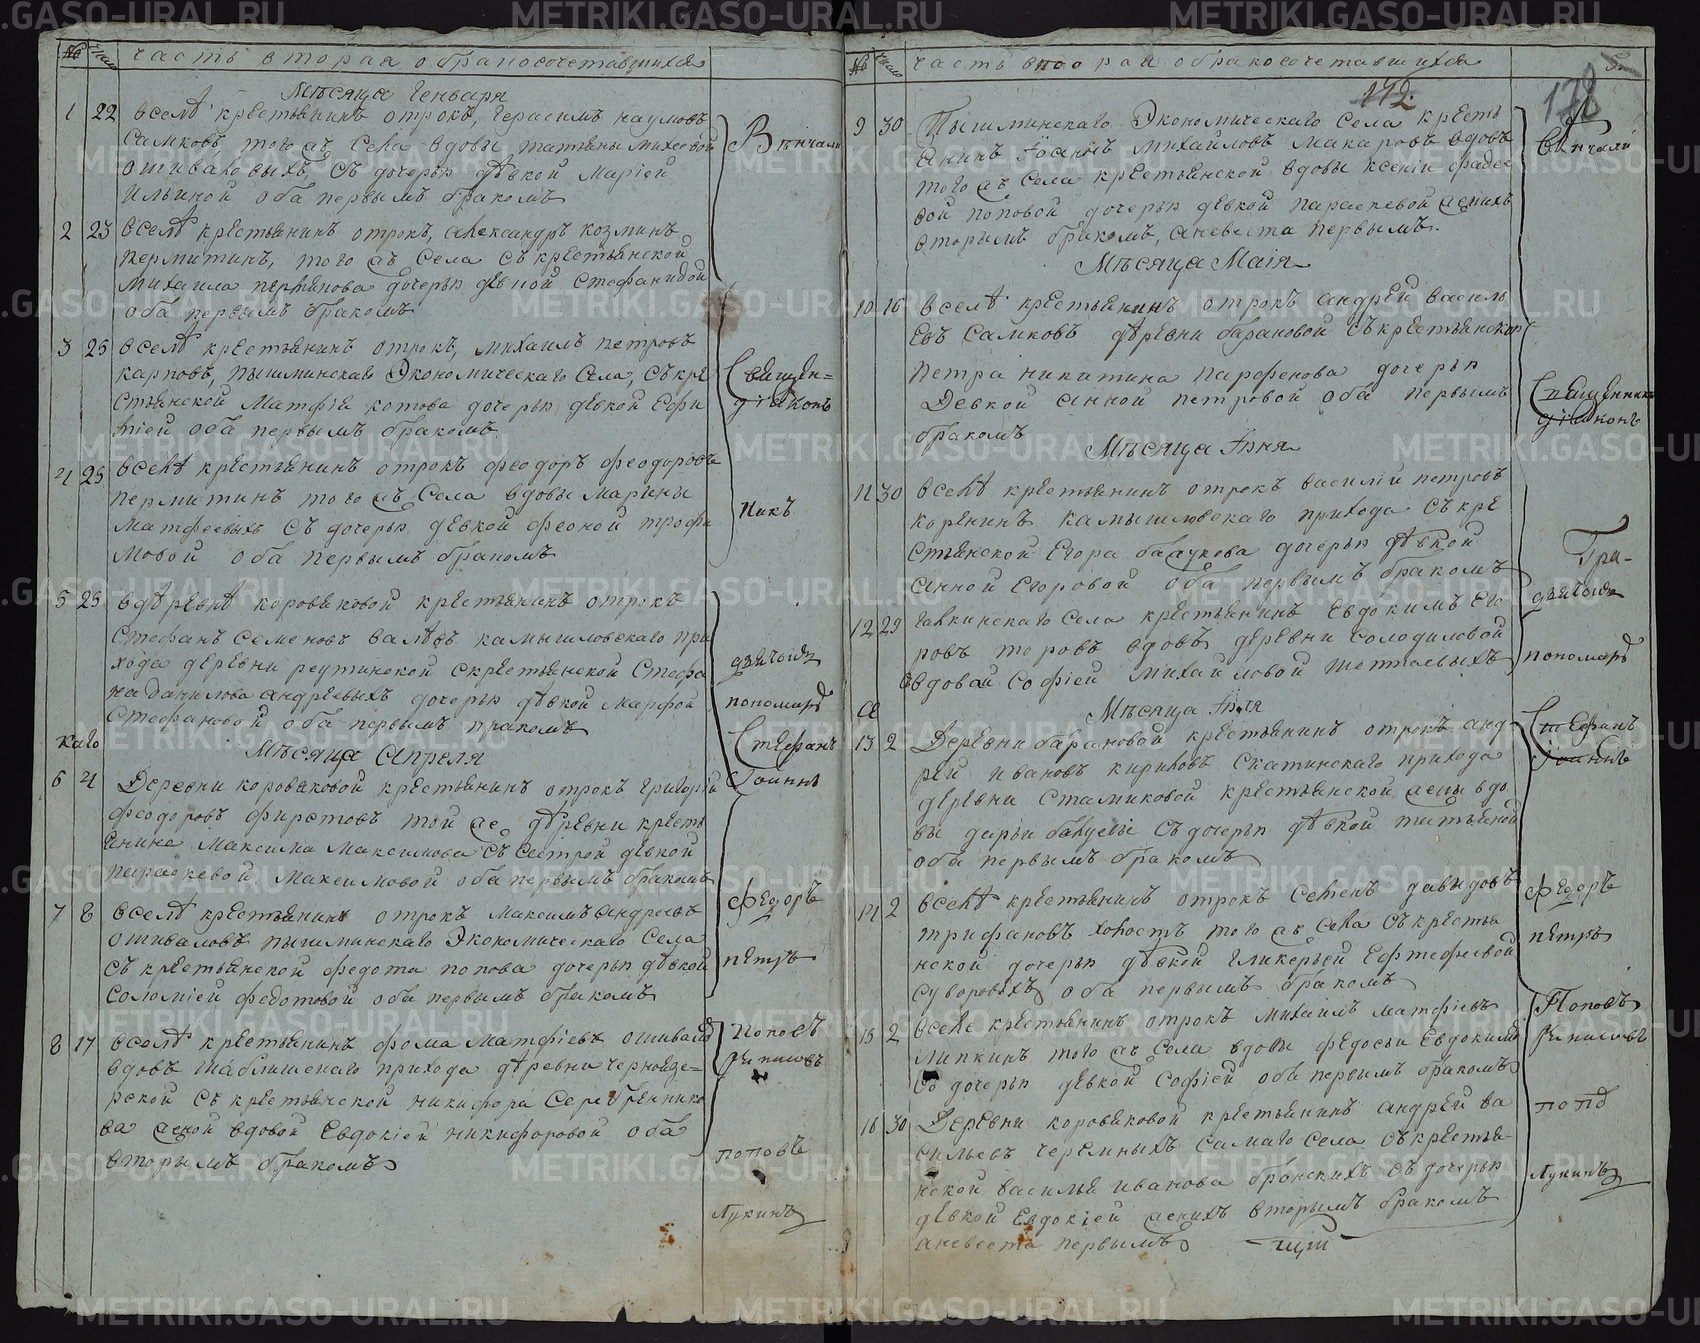 № число часть вторая о бракосочетавшихся
Мѣсяца Генваря
1 22 в селѣ крестьянинъ отрокъ, Герасимъ наумовъ
Самковъ, того жъ села вдовы татьяны михеевой
ошиваловыхъ, съ дочерью дѣвкой Маріей
Ильиной оба первымъ бракомъ
2 23 в селѣ крестьянинъ отрокъ, александръ козминъ
пермитинъ, того жъ села съ крестьянской
михаила пермякова дочерью девкой Стефанидой
оба первымъ бракомъ
3 25 в селѣ крестьянинъ отрокъ, михаилъ петровъ
карповъ, пышминскаго Экономическаго села, съ кре
стьянской Матфія котова дочерью девкой Софи
ніей оба первымъ бракомъ
4 25 в селѣ крестьянинъ отрокъ феодоръ феодоровъ
пермитинъ того жъ села вдовы марины
матфеевыхъ съ дочерью девкой феоной трофи
мовой оба первымъ бракомъ
5 25 в дѣревнѣ коровяковой крестьянинъ отрокъ
Стефанъ Семеновъ валѣвъ камышловскаго при
хода деревни реутинской скрестьянской Стефа
на данилова андреевыхъ дочерью дѣвкой марфой
Стефановой оба первымъ бракомъ
каго
Мѣсяца Апреля
6 4 Деревни коровяковой крестьянинъ отрокъ григорій
феодоровъ фирстовъ той же дѣревни кресть
янина максима максимова съ сестрой девкой
параскевой максимовой оба первымъ бракомъ
7 8 в селѣ крестьянинъ отрокъ максимъ андреевъ
ошиваловъ пышминскаго Экономическаго села
съ крестьянской федота попова дочерью дѣвкой
Соломіей федотовой оба первымъ бракомъ
8 17 в селѣ крестьянинъ фома матфіевъ ошивало
вдовъ шаблишскаго прихода дѣревни чернойзе=
рской съ крестьянской никифора Серебреннико
ва женой вдовой Евдокіей никифоровой оба
вторымъ бракомъ
Вѣнчали
Священ=
діаконъ
никъ
дьячоьки
пономарь
Стефанъ
Іоаннъ
Федоръ
петръ
Поповъ
поповъ
Лукинъ
№ число часть вторая о бракосочетавшихся
172. 178
9 30 Пышминскаго Экономическаго села кресть
янинъ Іоаннъ михайловъ макаровъ вдовъ
того жъ села крестьянской вдовы ксеніи фадее
вой поповой дочерью девкой параскевой женихъ
вторымъ бракомъ, а невеста первымъ.
Мѣсяца Маія
10 16 в селѣ крестьянинъ отрокъ андрей василь
евъ Самковъ дѣревни барановой съ крестьянской
петра никитина парфенова дочерью
Девкой анной петровой оба первымъ
бракомъ
Мѣсяца Іюня
11 30 в селѣ крестьянинъ отрокъ василій петровъ
коренинъ камышловскаго прихода съ кре
стьянской Егора балукова дочерью дѣвкой
анной Егоровой оба первымъ бракомъ
12 29 Галкинскаго села крестьянинъ Евдокимъ Его
ровъ торовъ вдовъ деревни солодиловой
вдовой Софіей михайловой шептаевыхъ
Мѣсяца Іюля
13 2 Деревни барановой крестьянинъ отрокъ анд-
рей ивановъ кириловъ скатинскаго прихода
деревни Стамиковой крестьянской жены вдо
вы дарьи бакуевы съ дочерью дѣвкой татьяной
оба первымъ бракомъ
14 2 в селѣ крестьянинъ отрокъ Семенъ давыдовъ
трифановъ холостъ того жъ села съ крестья
нской дочерью дѣвкой гликерьей Ефтефеевой
суворовыхъ оба первымъ бракомъ
15 2 в селе крестьянинъ отрокъ михаилъ матфіевъ
липкинъ того жъ села вдовы федосьи Евдокимо
во дочерью девкой Софіей оба первымъ бракомъ
16 30 Деревни коровяковой крестьянинъ андрей ва
сильевъ черемныхъ самаго села съ крестья
нской василья иванова бронскихъ съ дочерью
девкой Евдокіей женихъ вторымъ бракомъ
а невеста первымъ
Вѣнчали
Священникъ
діаконъ
пономарь
Стефанъ
Іоаннъ
федоръ
петръ
Поповъ
попо
Лукинъ